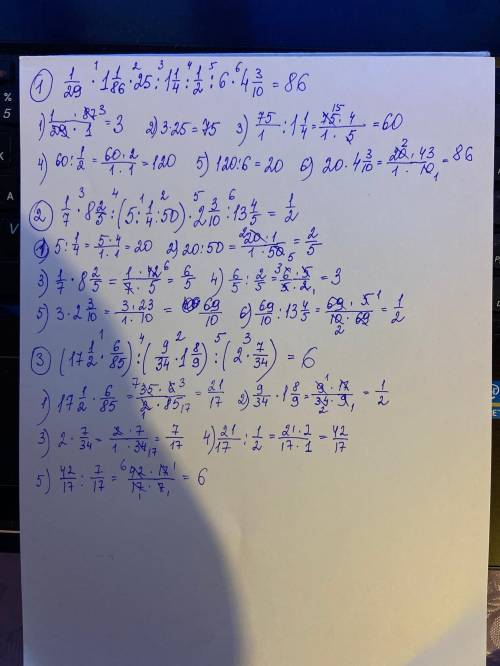 ① 1/29 · 1 1/86 · 25 : 1 1/4 : 1/2 : 6 · 4 3/10 = 86
1) 1 · 87/29 · 1 = 3 2) 3·25=75 3) 75/1 : 1 1/4 = 75 · 4/1 · 5 = 60
4) 60 : 1/2 = 60 · 2/1 · 1 = 120 5) 120:6=20 6) 20 · 4 3/10 = 20 · 43/1 · 10 = 86
② 1/7 · 8 2/5 : (5 : 1/4 : 50) · 2 3/10 : 13 4/5 = 1/2
1) 5 : 1/4 = 5 · 4/1 · 1 = 20 2) 20 : 50 = 20 · 1/1 · 50 = 2/5
3) 1/7 · 8 2/5 = 1 · 42/7 · 5 = 6/5 4) 6/5 : 2/5 = 6 · 5/5 · 2 = 3
5) 3 · 2 3/10 = 3 · 23/1 · 10 = 69/10 6) 69/10 : 13 4/5 = 69 · 5/10 · 69 = 1/2
③ (17 1/2 · 6/85) : (9/34 · 1 8/9) : (2 · 7/34) = 6
1) 17 1/2 · 6/85 = 35 · 6/2 · 85 = 21/17 2) 9/34 · 1 8/9 = 9 · 17/34 · 9 = 1/2
3) 2 · 7/34 = 2 · 7/1 · 34 = 7/17 4) 21/17 : 1/2 = 21 · 2/17 · 1 = 42/17
5) 42/17 : 7/17 = 42 · 17/17 · 7 = 6